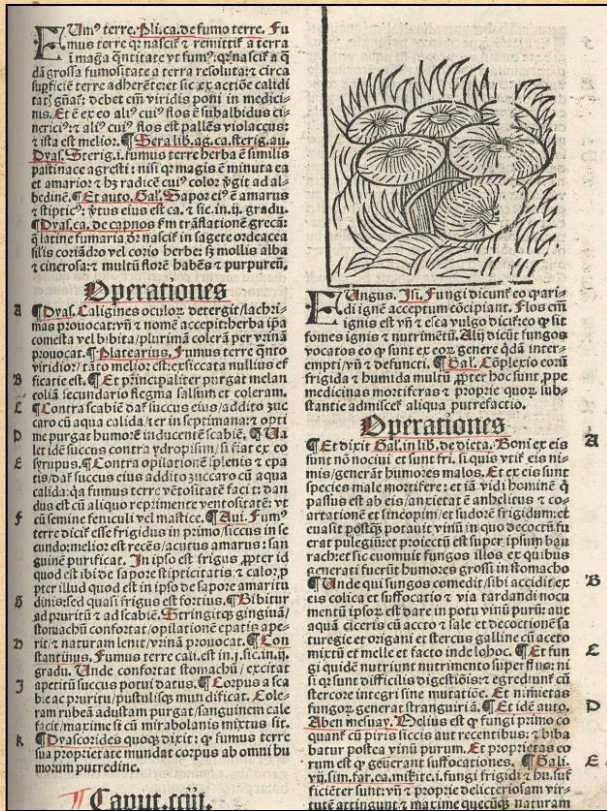 FUmꝰ terre. Pli. ca. de fumo terre. Fu
mus terre qꝛ nascit̃ ⁊ remittit̃ a terra
ĩ maga q̃ntitate vt fumꝰ: qꝛ nascit̃ a q̃
dã grossa fumositate a terra resoluta: ⁊ circa
supficiẽ terre adherẽte: et sic ex actiõe calidi
tatꝭ gñat̃: debet cũ viridis poni in medici-
nis. Et ẽ ex eo aliꝰ cuiꝰ flos ẽ subalbidus ci-
nericiꝰ: ⁊ aliꝰ cuiꝰ flos est pallẽs violaceus:
⁊ ista est melior. ¶ Sera lib. ag. ca. sterig. au.
Dyas. Sterig. i. fumus terre herba ẽ similis
pastinace agresti: nisi qꝛ magis ẽ minuta ea
et amarior: ⁊ hꝫ radicẽ cuiꝰ color v̓git ad al-
bedinẽ. ¶ Et auto. Gal. Sapor eiꝰ ẽ amarus
⁊ stipticꝰ: v̓tus eius est ca. ⁊ sic. in. ij. gradu.
¶ Dyas. ca. de capnos k̃m trãslationẽ grecã:
q̃ latine fumaria dr̃ nascit̃ in sagete ordeacea
silis coriãdro vel corio herbe: sꝫ mollis alba
⁊ cinerosa: ⁊ multũ florẽ habẽs ⁊ purpureũ.
Operationes
A ¶ Dyas. Caligines oculoꝝ detergit/lachri-
mas prouocat: vñ ⁊ nomẽ accepit: herba ipa
comesta vel bibita/plurimã colerã per vrinã
prouocat. ¶ Platearius. Fumus terre q̃nto
viridior/tãto melior est: exsiccata nullius ef
B ficatie est. ¶ Et principaliter purgat melan
coliã secundario flegma salsum et coleram.
C ¶ Contra scabiẽ daꝭ succus eius/addito zuc
caro cũ aqua calida/ter in septimana: ⁊ opti
D me purgat humorẽ inducentẽ scabiẽ. ¶ Ua
let idẽ succus contra ydropisim/si fiat ex eo
E syrupus. ¶ Contra opilationẽ splenis ⁊ epa
tis/daꝭ succus eius addito zuccaro cũ aqua
calida: q̃a fumus terre vẽtositatẽ facit: dan
dus est cũ aliquo reprimente ventositatẽ: vt
F cũ semine feniculi vel mastice. ¶ Aui. Fumꝰ
terre dicit̃ esse frigidus in primo/siccus in se
cundo: melior est recẽs/acutus amarus: san
guinẽ purificat. In ipso est frigus ꝓpter id
quod est ibi de sapore stipticitatis ⁊ calor ꝓp
pter illud quod est in ipso de sapore amaritu
G dinis: sed quasi frigus est fortius. ¶ Bibitur
ad pruritũ ⁊ ad scabiẽ. Stringitqꝫ gingiuã/
stomachũ confortat/opilationẽ epatis ape-
H rit ⁊ naturam lenit/vrinã prouocat. ¶ Con
stantinus. Fumus terre cali. est in. j. sic. in. ij.
gradu. Unde confortat stomachũ/excitat
J apetitũ succus potui datus. ¶ Corpus a sca
bie ac pruritu/pustulisqꝫ mundificat. Cole-
ram rubeã adustam purgat/sanguinem cale
facit/maxime si cũ mirabolanis mixtus sit.
K ¶ Dyascorides quoqꝫ dixit: qꝙ fumus terre
sua proprietate mundat corpus ab omni hu
morum putredine.
¶ Caput. cciij.
FUngus. Isi. Fungi dicunt̃ eo qꝙ ari-
di ignẽ acceptum cõcipiant. Flos eni
ignis est vñ ⁊ esca vulgo dicit̃: eo qꝙ sit
fomes ignis ⁊ nutrimẽtũ. Alij dicũt fungos
vocatos eo qꝙ sunt ex eoꝝ genere q̃dã inter-
empti/vñ ⁊ defuncti. ¶ Gal. Cõplexio eorũ
frigida ⁊ humida multũ ꝓpter hoc sunt ꝓpe
medicinas mortiferas ⁊ proprie quoꝝ sub-
stantie admiscet̃ aliqua putrefactio.
Operationes
¶ Et dixit Gal. in lib. de dieta. Boni ex eis A
sunt nõ nociui et sunt fri. si quis vtit̃ eis ni-
mis/generãt humores malos. Et ex eis sunt
species male mortifere: et iã vidi hominẽ q̃
passus est ab eis/anxietatẽ anhelitus ⁊ co-
artationẽ et sincopim/et sudorẽ frigidum: et
euasit postq̃ potauit vinũ in quo decoctũ fu
erat pulegiũ: et proiectũ est super ipsum bau
rach: et sic euomuit fungos illos ex quibus
generati fuerũt humores grossi in stomacho
¶ Unde qui fungos comedit/sibi accidit: ex B
eis colica et suffocatio ⁊ via tardandi nocu
mentũ ipsoꝝ est dare in potu vinũ purũ: aut
aquã ciceris cũ aceto ⁊ sale et decoctionẽ sa
turegie et origani et stercus galline cũ aceto
mixtũ et melle et facto inde lohoc. ¶ Et fun C
gi quidẽ nutriunt nutrimento superfluo: ni
si qꝛ sunt difficilis digestiõis: ⁊ egrediunt̃ cũ
stercore integri sine mutatiõe. Et nimietas
fungoꝝ generat stranguiriã. ¶ Et idẽ auto. D
Aben mesuay. Melius est qꝙ fungi primo co
quant̃ cũ piris siccis aut recentibus: ⁊ biba
batur postea vinũ purum. Et proprietas eo
rum est qꝙ generãt suffocationes. ¶ Gali. E
vij. sim. far. ca. mikite. i. fungi frigidi ⁊ hu. suf
ficiẽter sunt: vñ ⁊ proprie delicteriosam vir-
tutẽ attingunt ⁊ maxime quecũqꝫ naturam